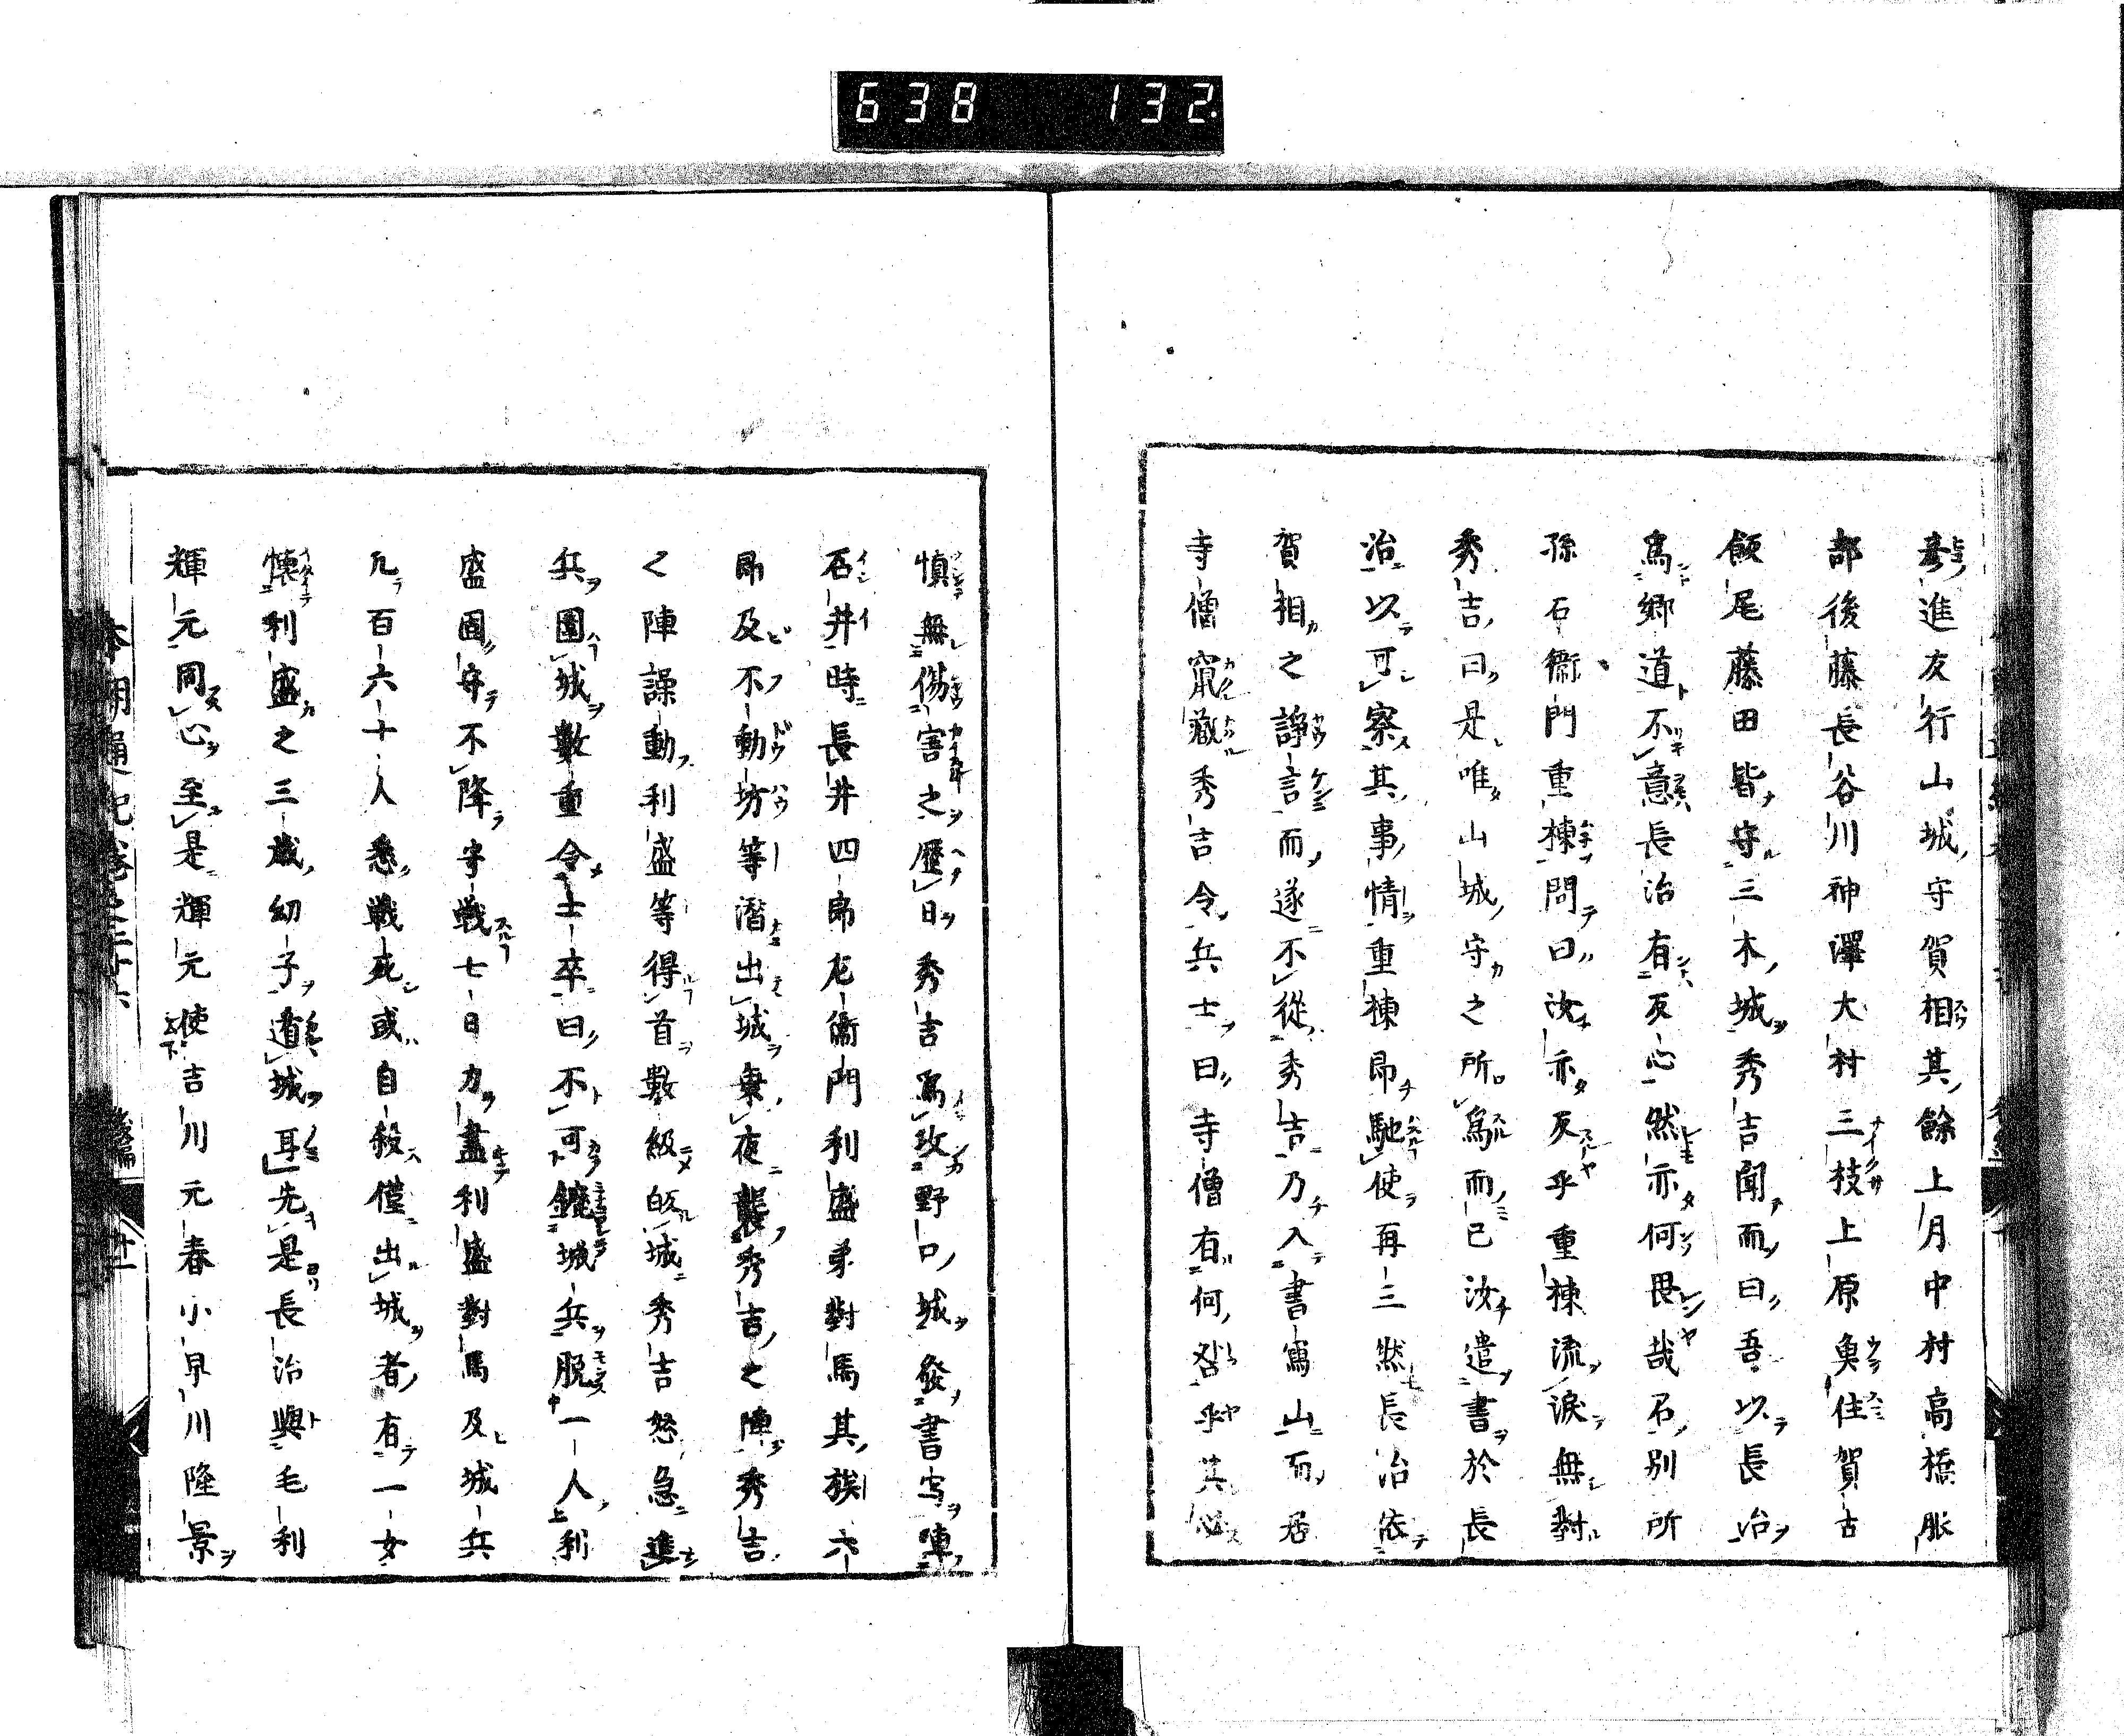 638 132
彥進友行山城守賀相其餘上月中村高橋脈
部後藤長谷川神澤大村三枝上原奧住賀古
飯尾藤田皆守三木城秀吉聞而曰吾以長治
爲郷道不意長治有反心然亦何畏哉召別所
孫右衞門重棟問曰汝亦反乎重棟流淚無對
秀吉曰是唯山城守之所爲而已汝遣書於長
治以可察其事情重棟即馳使再三然長治依
賀相之諍言而遂不從秀吉乃入書寫山而居
寺僧竄藏秀吉令兵士曰寺僧有何咎乎其必
慎無傷害之歷日秀吉爲攻野口城發書写陣
石井時長井四郎左衞門利盛弟對馬其族六
郎及不動坊等潛出城乗夜襲秀吉之陣秀吉
之陣譟動利盛等得首數級皈城秀吉怒急進
兵圍城數重令士卒曰不可鏖城兵脱一人利
盛固守不降守戦七日力盡利盛對馬及城兵
凢百六十人悉戦死或自殺僅出城者有一女
懐利盛之三歳幼子遁城耳先是長治與毛利
輝元同心至是輝元使吉川元春小早川隆景
本朝通記卷之二十六 後編 廿一